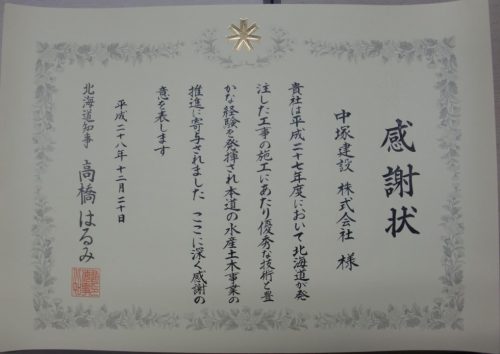 感謝状
中塚建設 株式会社 様
貴社は平成二十七年度において北海道が発
注した工事の施工にあたり優秀な技術と豊
かな経験を発揮され本道の水産土木事業の
推進に寄与されました ここに深く感謝の
意を表します
平成二十八年十二月二十日
北海道知事 高橋はるみ